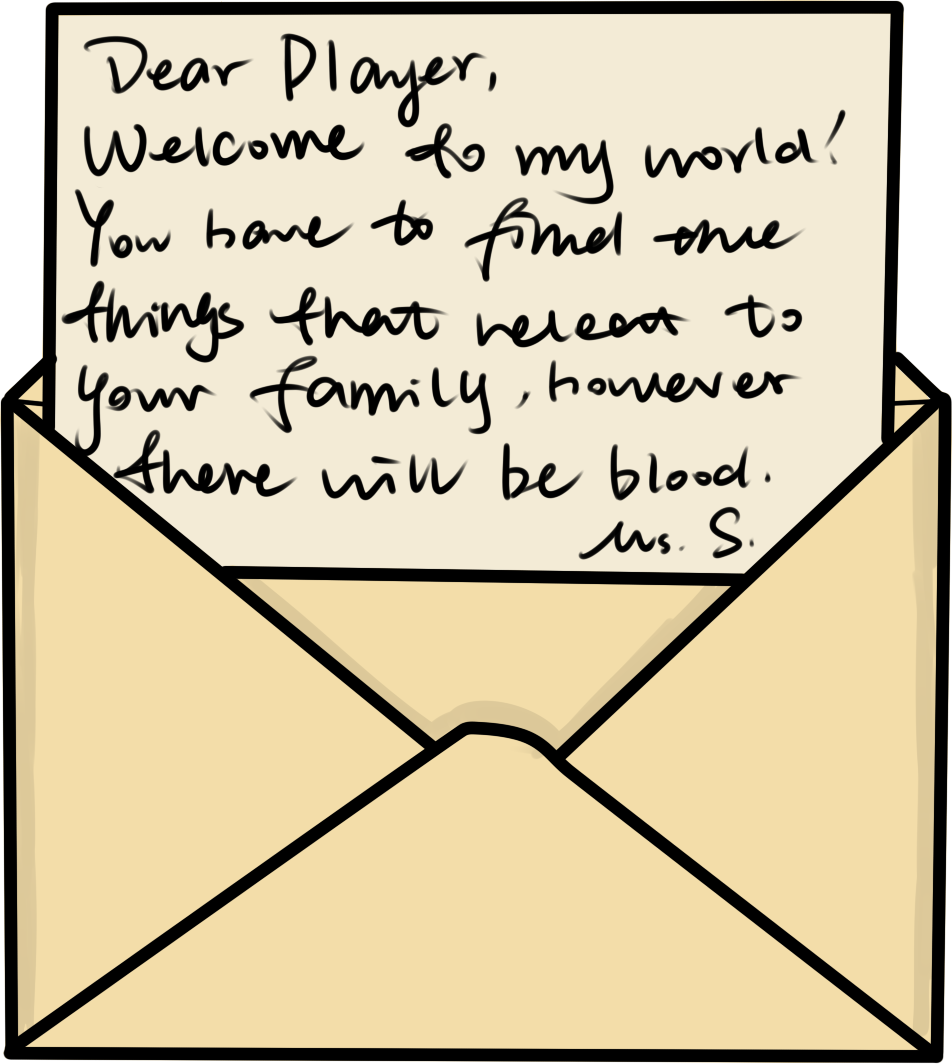 Dear Player,
Welcome to my world!
You have to find the
things that releat to
your family, however
there will be blood.
Ms. S.